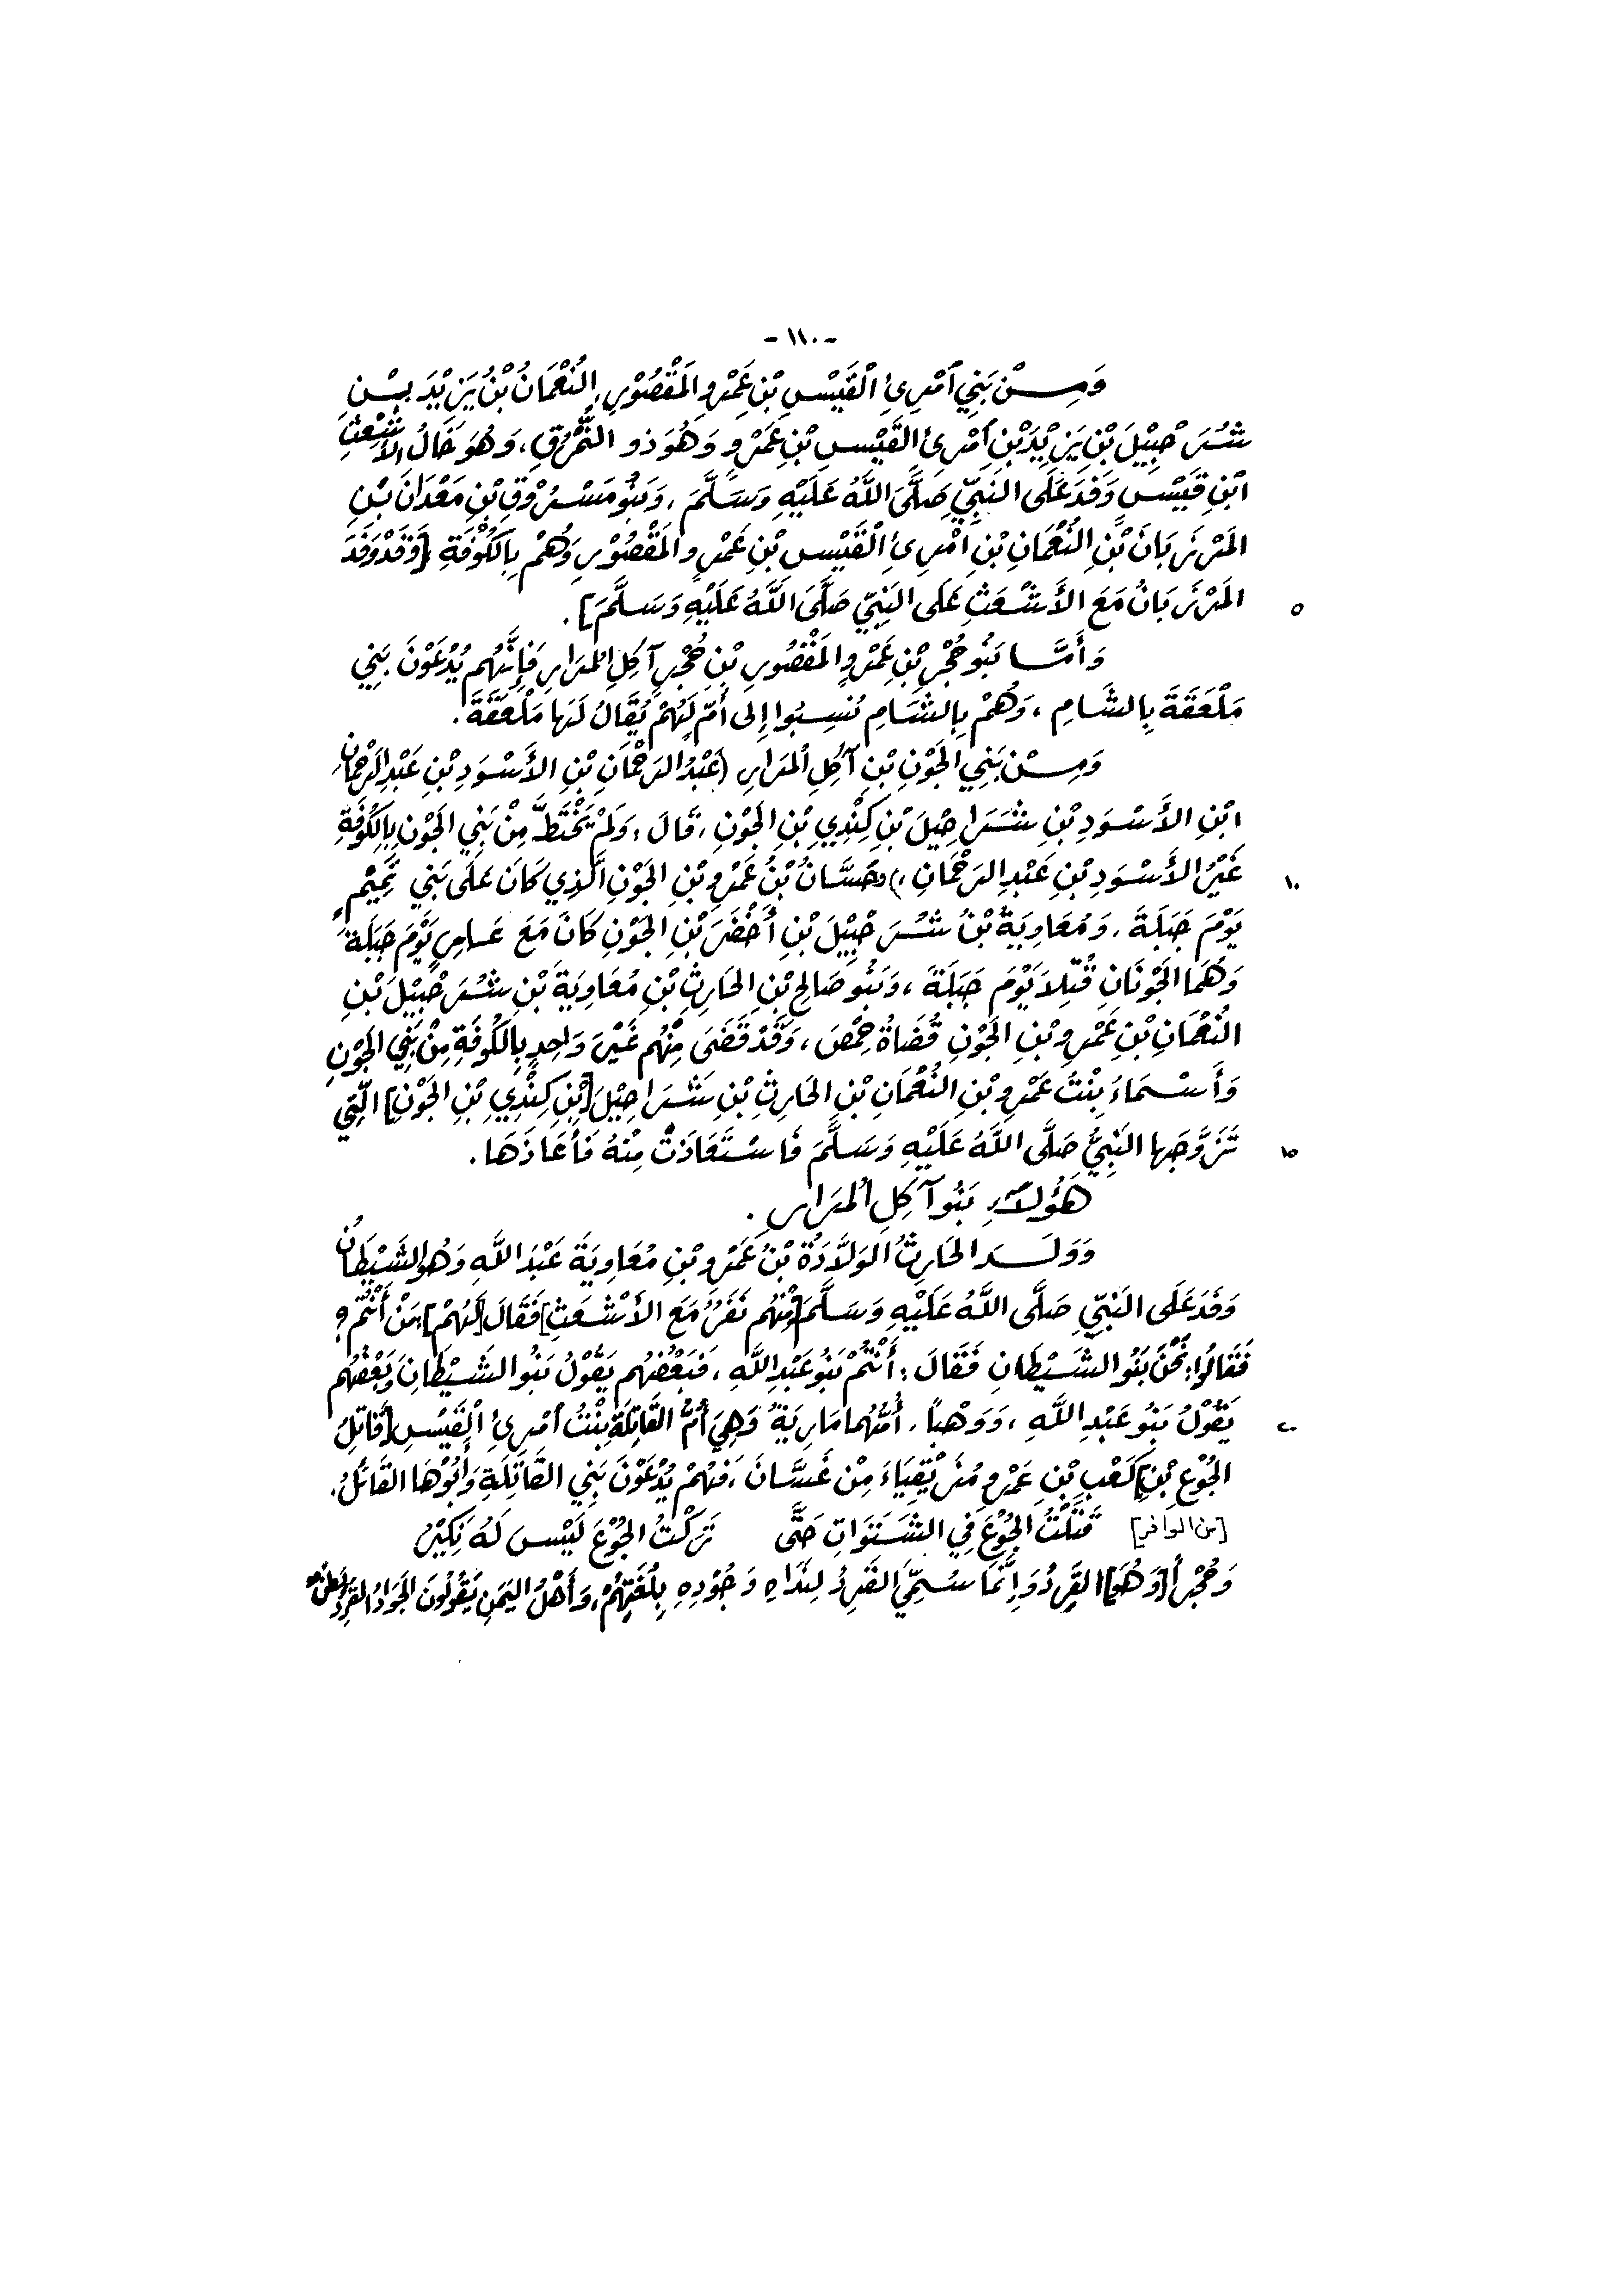 - ١١٠ -
وَمِنْ بَنِي ٱمْرِئِ ٱلْقَيْسِ بْنِ عَمْرٍو المَقْصُوْرِ، النُعْمَانُ بْنُ يَزِيْدَ بْنِ
شُرَحْبِيْلَ بْنِ يَزِيْدَ بْنِ ٱمْرِئِ القَيْسِ بْنِ عَمْرٍو وَهُوَ ذو النُّمْرُقِ، وَهُوَ خَالُ الأَشْعَثِ
ابْنِ قَيْسٍ وَفَدَ عَلَى النَبِيِّ صَلَّى اللَّهُ عَلَيْهِ وَسَلَّمَ، وَبَنُو مَسْرُوْقِ بْنِ مَعْدَانَ بْنِ
المَرْزَبَانَ بْنِ النُعْمَانِ بْنِ امْرِئِ ٱلْقَيْسِ بْنِ عَمْرٍو المَقْصُوْرِ وَهُمْ بِالكُوْفَةِ [وَقَدْ وَفَدَ
المَرْزَبَانُ مَعَ الأَشْعَثِ عَلَى النَبِيِّ صَلَّى اللَّهُ عَلَيْهِ وَسَلَّمَ]. ٥
وَأَمَّا بَنُو حُجْرِ بْنِ عَمْرٍو المَقْصُورِ بْنِ حُجْرٍ آكِلِ المُرَارِ فَإِنَّهُم يُدْعَوْنَ بَنِي
مَلْعَقَةَ بِالشَّامِ، وَهُمْ بِالشَامِ نُسِبُوا إِلى أُمٍّ لَهُمْ يُقَالُ لَهَا مَلْعَقَةَ.
وَمِنْ بَنِي الجَوْنِ بْنِ آكِلِ ٱلمُرَارِ (عَبْدُ الرَحْمَانِ بْنِ الأَسْوَدِ بْنِ عَبْدِ الرَحْمَانِ
ابْنِ الأَسْوَدِ بْنِ شَرَاحِيْلَ بْنِ كِنْدِي بْنِ الجَوْنِ، قَالَ: وَلَمْ يَخْتَطَّ مِنْ بَنِي الجَوْنِ بِالكُوفَةِ
غَيْرُ الأَسْوَدِ بْنِ عَبْدِ الرَحْمَانِ،) وَحَسَّانُ بْنُ عَمْرِو بْنِ الجَوْنِ الَّذِي كَانَ عَلَى بَنِي تَمِيْمٍ ١٠
يَوْمَ جَبَلَةَ، وَمُعَاوِيَةُ بْنُ شُرَحْبِيْلَ بْنِ أَخْضَرَ بْنِ الجَوْنِ كَانَ مَعَ عَامِرٍ يَوْمَ جَبَلَةَ
وَهُمَا الجَوْنَانِ قُتِلَا يَوْمَ جَبَلَةَ، وَبَنُو صَالِحِ بْنِ الحَارِثِ بْنِ مُعَاوِيَةَ بْنِ شُرَحْبِيْلَ بْنِ
النُعْمَانِ بْنِ عَمْرِو بْنِ الجَوْنِ قُضَاةُ حِمْصَ، وَقَدْ قَضَى مِنْهُم غَيْرَ وَاحِدٍ بِالكُوفَةِ مِنْ بَنِي الجَوْنِ
وَأَسْمَاءَ بِنْتُ عَمْرِو بْنِ النُعْمَانِ بْنِ الحَارِثِ بْنِ شَرَاحِيْلَ [بْنِ كِنْدِي بْنِ الجَوْنِ] الَّتِي
تَزَوَّجَها النَبِيُّ صَلَّى اللَّهُ عَلَيْهِ وَسَلَّمَ فَاسْتَعَاذَتْ مِنْهُ فَأَعَاذَهَا. ١٥
هَؤُلَاءِ بَنُو آكِلِ المُرَارِ.
وَوَلَدَ الحَارِثُ الوَلَّادَةُ بْنُ عَمْرِو بْنِ مُعَاوِيَةَ عَبْدَ اللَّهِ وَهُوَ الشَيْطَانُ
وَفَدَ عَلَى النَبِيِّ صَلَّى اللَّهُ عَلَيْهِ وَسَلَّمَ [مِنْهُم نَفَرٌ مَعَ الأَشْعَثِ] فَقَالَ [لَهُمْ]: مَنْ أَنْتُم؟
فَقَالُوا: نَحْنُ بَنُو الشَيْطَانِ فَقَالَ: أَنْتُمْ بَنُو عَبْدِ اللَّهِ، فَبَعْضُهُم يَقُوْلُ بَنُو الشَيْطَانِ وَبَعْضُهُم
يَقُوْلُ بَنُو عَبْدِ اللَّهِ، وَوَهْباً، أُمُّهُما مَارِيَةُ وَهِيَ أُمُّ القَاتِلَةِ بِنْتُ ٱمْرِئِ ٱلْقَيْسِ [قَاتِلِ ٢٠
الجُوْعِ بْنِ] كَعْبِ بْنِ عَمْرٍو مُزَيْقِيَاءَ مِنْ غَسَّانَ، فَهُمْ يُدْعَوْنَ بَنِي القَاتِلَةِ وَأَبُوْهَا القَائِلُ.
[من الوافر] قَتَلْتُ الجُوْعَ فِي الشَتَوَاتِ حَتَّى تَرَكْتُ الجُوْعَ لَيْسَ لَهُ نَكِيْرُ
وَحُجْراً [وَهُوَ] القَرِدُ وَإِنَّمَا سُمِّيَ القَرِدُ لِنَدَاهِ وَجُوْدِهِ بِلُغَتِهُمْ، وَأَهْلُ اليَمَنِ يَقُوْلُونَ الجَوَادُ القَرِدُ، بَطْنٌ